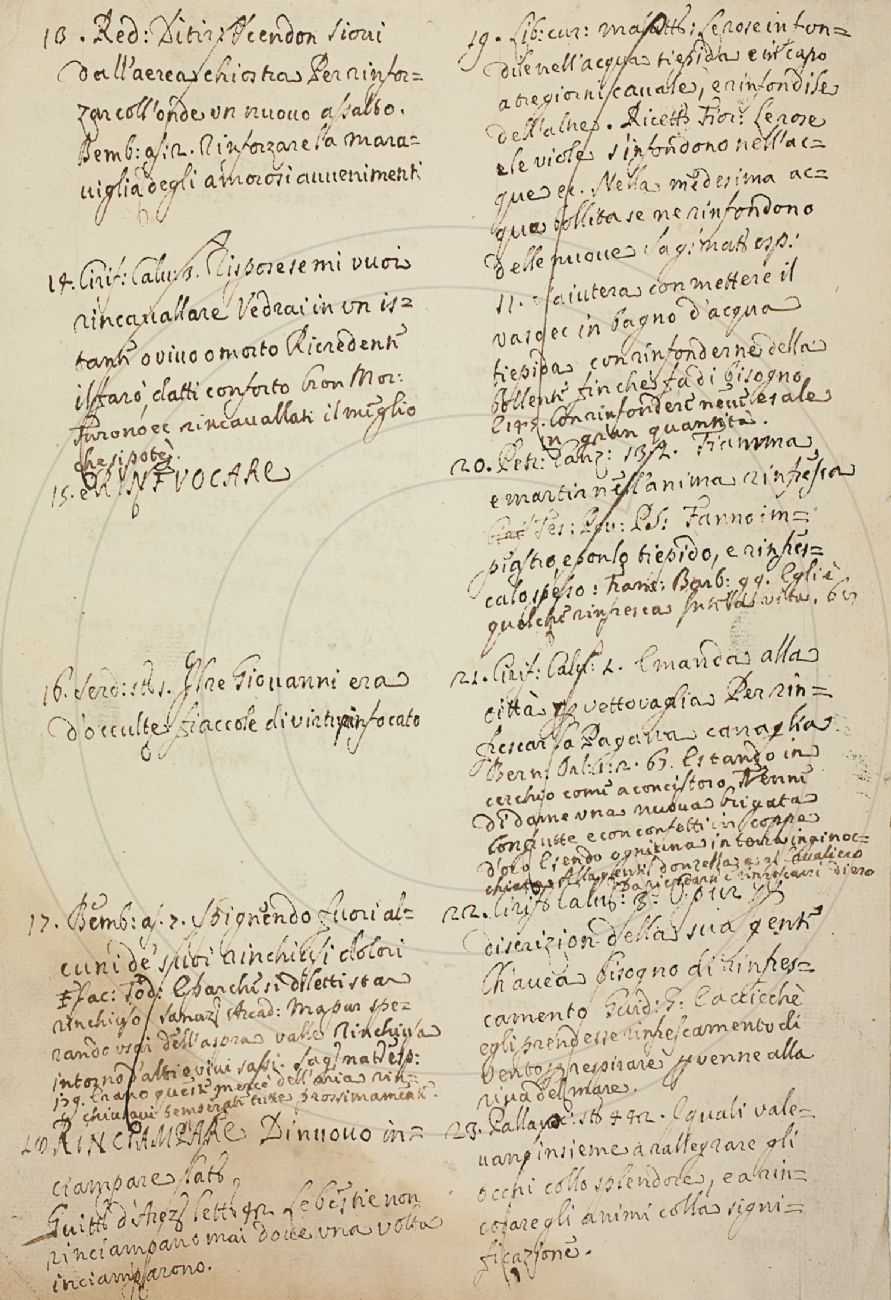 13. Red: Ditir: Scendon Giovi
dall'aerea chiostra Per rinfor=
zar coll'onde un nuovo assalto.
Bemb: as: 2. Rinforzare la mara=
viglia degli amorosi avvenimenti
14. Cirif: Calv: 3. Rispose se mi vuoi
rincavallare Vedrai in un is=
tante o vivo o morto Ricredente
il farò, datti conforto Cron Mor:
Furono, ec rincavallati il meglio
che si potè.
15. RINVOCARE
16. Serd: st: 1. Il re Giovanni era
d'occulte fiaccole di virtù rinfocato
17. Bemb: as. 2. Spignendo fuori al=
cuni de' suoi rinchiusi dolori
Fr Jac: Tod: E parche si diletti star
rinchiuso Sanaz: Arcad: Ma pur spe=
rando uscir dell'aspra valle Rinchiusa
intorno d'alti e vivi sassi. Sag: nat: esp:
139. Erano queste merce dell'aria rin=
chiusavi temperate tutte prossimamente.
18 RINCIAMPARE Di nuovo in=
ciampare Lat:
Guitt: d'Arez: lett: 42 Le bestie non
rinciampano mai dove una volta
inciamparono.
19. Lib: cur: malatt: Le rose infon=
dile nell'acqua tiepida e in capo
a tre giorni cavale, e rinfondile
dell'altre. Ricett: Fior: Le rose
e le viole s'infondono nell'ac=
que ec. Nella medesima ac=
qua bollita se ne rinfondono
delle nuove Sag: nat: esp:
11. S'aiuterà con mettere il
vaso ec in bagno d'acqua
tiepida con rinfonderne della
bollente finche fa di bisogno
E 175. Con rinfondere neve e sale
in gran quantità.
20. Petr: Canz: 18 4. Fiamma
e martir nell'anima rinfresca
Tes: Pov: P.S: Fanno im=
piastro, e ponlo tiepido, e rinfres=
calo spesso: Franc: Barb: 99. Egli è
quel che rinfresca tutta la vita.
21. Cirif: Calv: 1. E manda alla
città per vettovaglia Per rin=
frescar la Pagana canaglia
Bern: Orl: 1: 2. 63. Estando in
cerchio come a concistoro Venne
di dame una nuova brigata
Con frutte e con confetti in coppe
d'oro Essendo ognuna in terra inginoc=
chiata
22. Cirif: Calv: 3.
discrizion della sua gente
Ch'avea bisogno di rinfres=
camento Guid: G: Cacciocchè
egli prendesse rinfrescamento di
vento per respirare, venne alla
riva del mare.
23. Pallav: st: 442. I quali vale=
vano insieme a rallegrare gli
occhi collo splendore, e a rin=
corare gli animi colla signi=
ficazione.